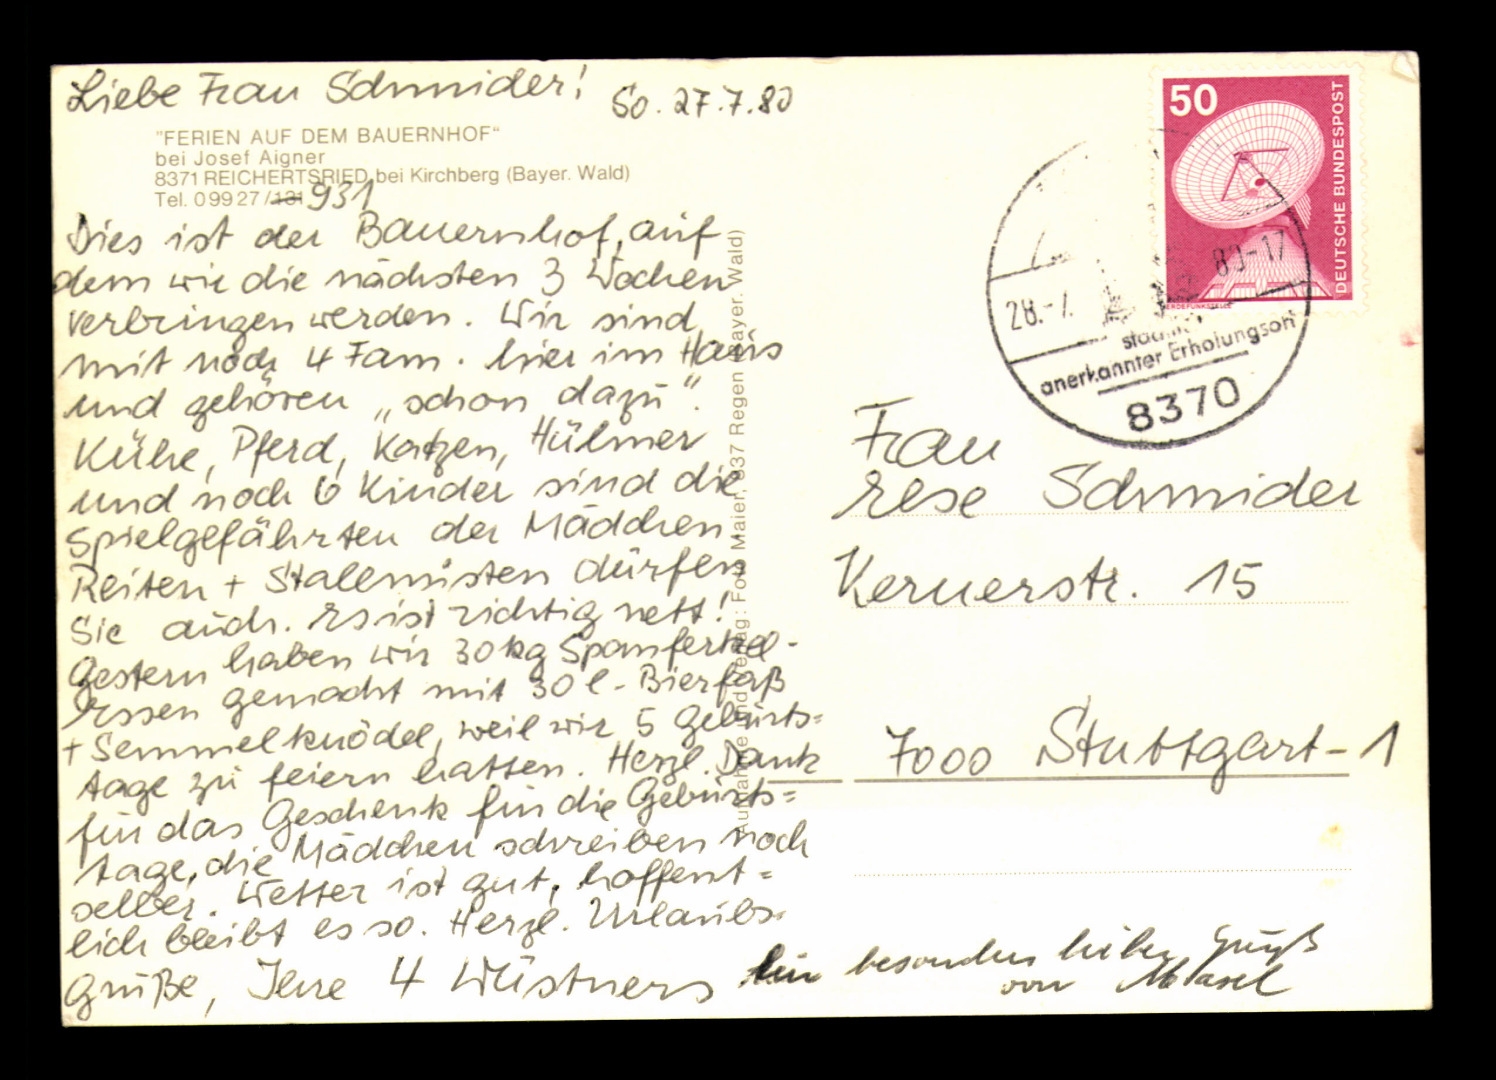 Liebe Frau Schmider!
So. 27.7.80
"FERIEN AUF DEM BAUERNHOF"
bei Josef Aigner
8371 REICHERTSRIED bei Kirchberg (Bayer. Wald)
Tel. 09927/131 931
Dies ist der Bauernhof, auf
dem wir die nächsten 3 Wochen
verbringen werden. Wir sind
mit noch 4 Fam. hier im Haus
und gehören „schon dazu".
Kühe, Pferd, Katzen, Hühner
und noch 6 Kinder sind die
Spielgefährten der Mädchen.
Reiten + Stalemisten dürfen
Sie auch. Es ist richtig nett!
Gestern haben wir 30 kg Spanferkel-
Essen gemacht mit 30 l - Bierfaß
+ Semmelknödel, weil wir 5 Geburts=
tage zu feiern hatten. Herzl. Dank
für das Geschenk für die Geburts=
tage, die Mädchen schreiben noch
selber. Wetter ist gut, hoffent=
lich bleibt es so. Herzl. Urlaubs-
grüße, Ihre 4 Wüstners
Ein besonders lieber Gruß
von
Aufnahme und Verlag: Foto Maier, 837 Regen (Bayer. Wald)
50
DEUTSCHE BUNDESPOST
ERDEFUNKSTELLE
28.-7. 80-17
staatl.
anerkannter Erholungsort
8370
Frau
Rese Schmider
Kernerstr. 15
7000 Stuttgart-1